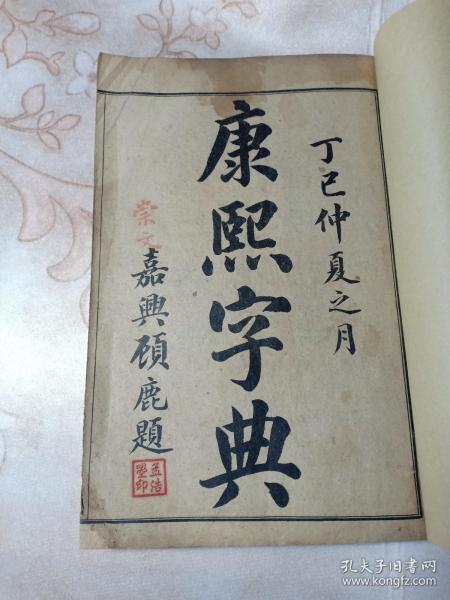 丁巳仲夏之月
康熙字典
崇文
嘉興顧鹿題
孟浩
墨印
孔夫子旧书网
www.kongfz.com